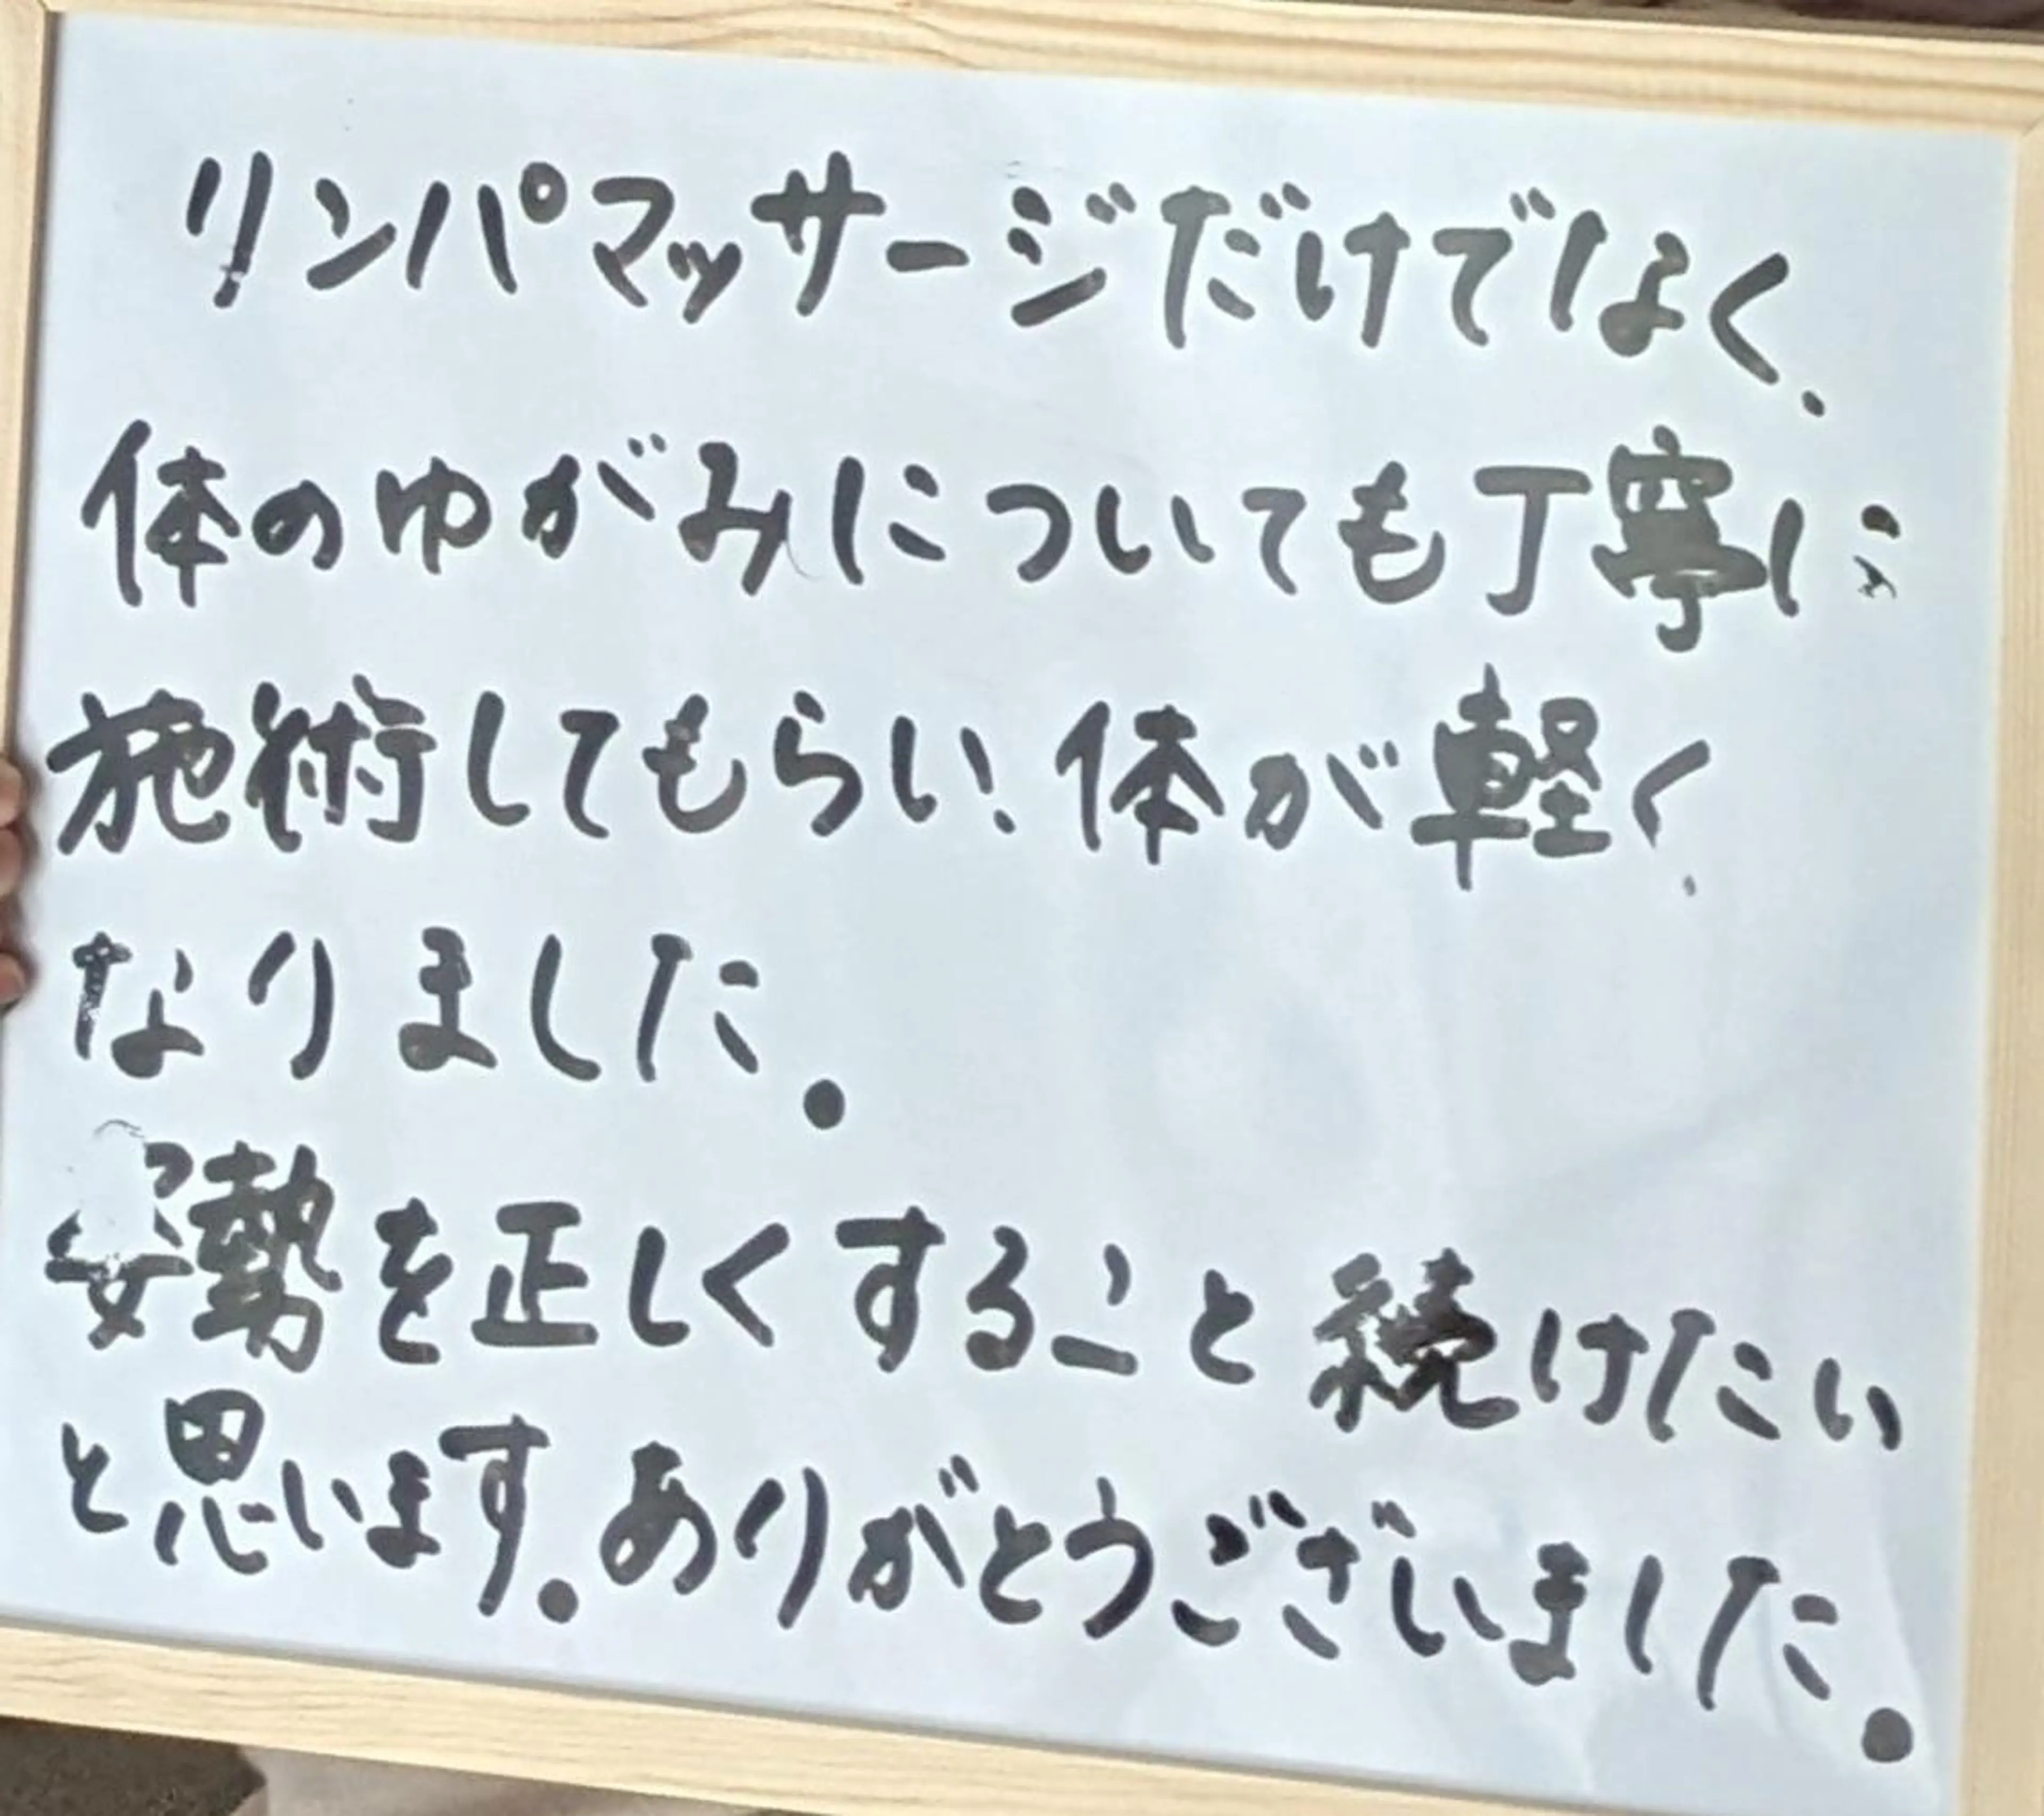 リンパマッサージだけでなく、
体のゆがみについても丁寧に
施術してもらい、体が軽く
なりました。
姿勢を正しくすること続けたい
と思います。ありがとうございました。